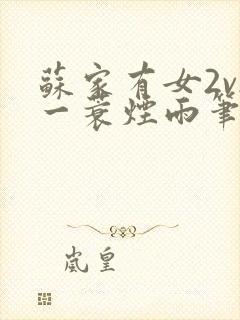 蘇家有女2v
一蓑煙雨筆
嵐皇